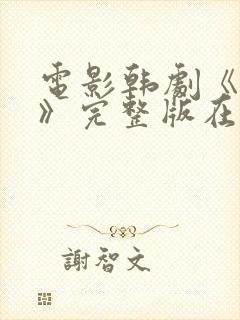 電影韩劇《
》完整版在
謝智文